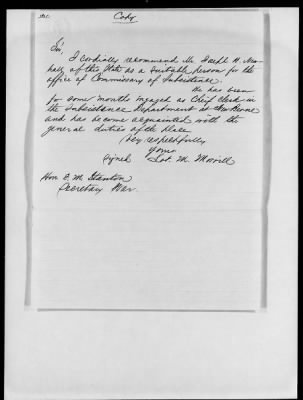 Copy
Sir,
I cordially recommend Mr Joseph H.
of this State as a suitable person for the
office of Commissary of Subsistence.
He has been
for some months engaged as Chief Clerk in
the Subsistence Department at
and has become acquainted with the
general duties of the place
Very respectfully
Yours
Signed Lot. M. Morrill
Hon E. M. Stanton
Secretary War.